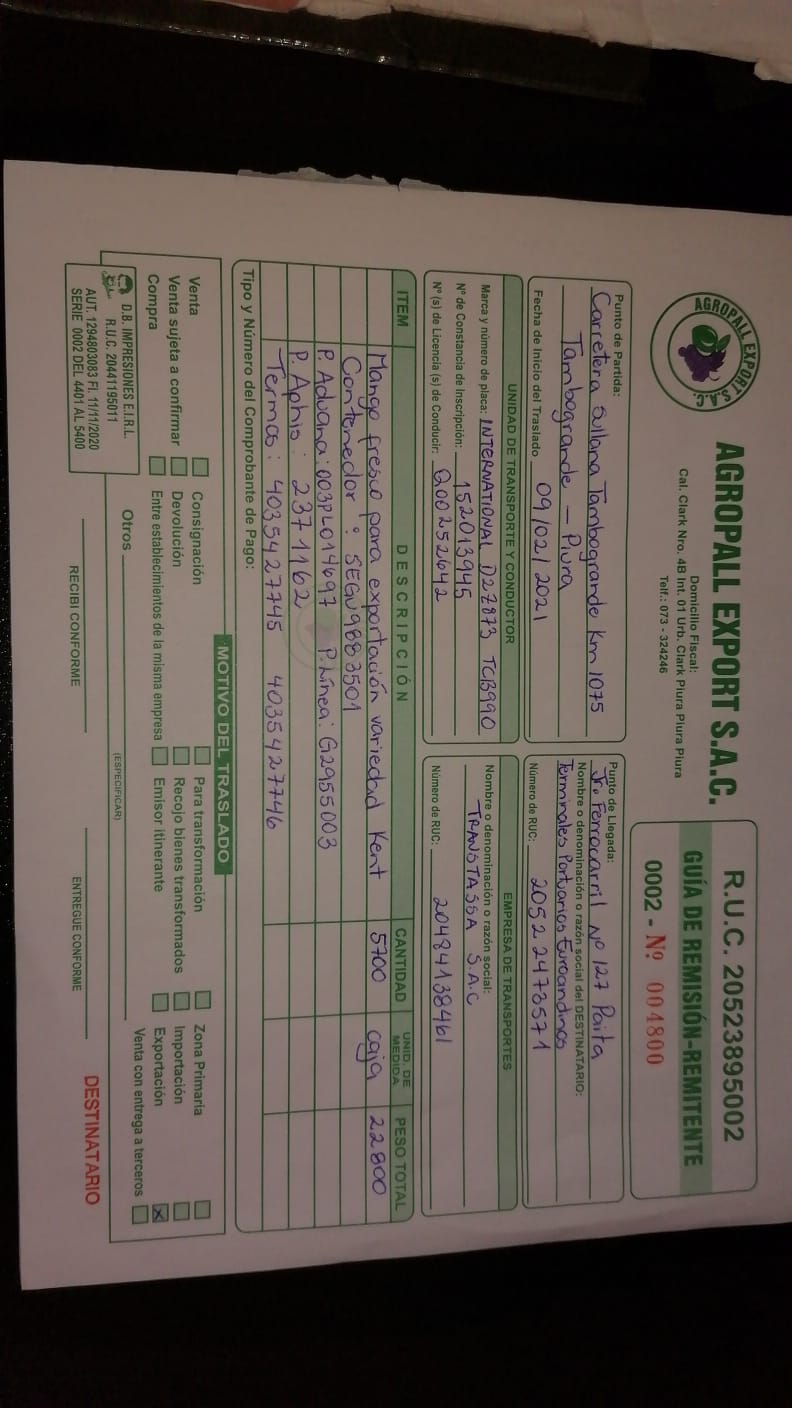 AGROPALL EXPORT S.A.C.
AGROPALL EXPORT S.A.C.
Domicilio Fiscal:
Cal. Clark Nro. 4B Int. 01 Urb. Clark Piura Piura Piura
Telf.: 073 - 324246
R.U.C. 20523895002
GUÍA DE REMISIÓN-REMITENTE
0002 - Nº 004800
Punto de Partida:
Carretera Sullana Tambogrande Km 1075
Tambogrande - Piura
Fecha de Inicio del Traslado 09/02/2021
Punto de Llegada:
Jr Ferrocarril Nº 127 Paita
Nombre o denominación o razón social del DESTINATARIO:
Terminales Portuarios Euroandinos
Número de RUC: 20522473571
UNIDAD DE TRANSPORTE Y CONDUCTOR
Marca y número de placa: INTERNATIONAL D2Z873 TCB990
Nº de Constancia de Inscripción: 152013945
Nº (s) de Licencia (s) de Conducir: Q00252642
EMPRESA DE TRANSPORTES
Nombre o denominación o razón social:
TRANSTASSA S.A.C
Número de RUC: 20484138461
ITEM DESCRIPCIÓN CANTIDAD UNID. DE MEDIDA PESO TOTAL
Mango fresco para exportación variedad Kent 5700 caja 22800
Contenedor: SEGU9883501
P. Aduana: 003PL014697 P. Línea: G2955003
P. Aphis: 2371162
Termos: 4035427745 4035427746
Tipo y Número del Comprobante de Pago:
MOTIVO DEL TRASLADO
Venta Consignación Para transformación Zona Primaria
Venta sujeta a confirmar Devolución Recojo bienes transformados Importación
Compra Entre establecimientos de la misma empresa Emisor itinerante Exportación
Otros Venta con entrega a terceros
(ESPECIFICAR)
D.B. IMPRESIONES E.I.R.L.
R.U.C. 20441195011
AUT. 1294803083 FI. 11/11/2020
SERIE 0002 DEL 4401 AL 5400
RECIBI CONFORME
ENTREGUE CONFORME
DESTINATARIO